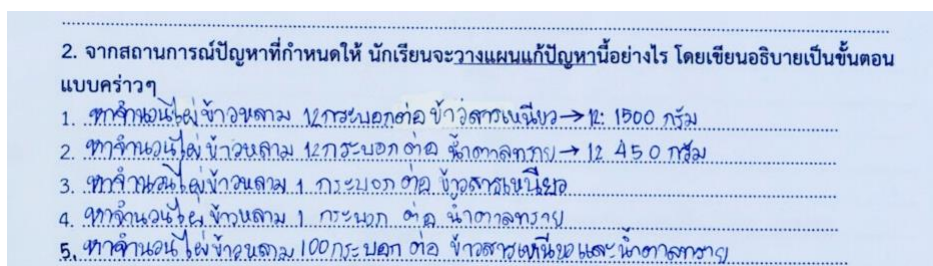 2. จากสถานการณ์ปัญหาที่กำหนดให้ นักเรียนจะวางแผนแก้ปัญหานี้อย่างไร โดยเขียนอธิบายเป็นขั้นตอน
แบบคร่าวๆ
1. หาจำนวนไผ่ข้าวหลาม 12 กระบอกต่อ ข้าวสารเหนียว → 12: 1500 กรัม
2. หาจำนวนไผ่ข้าวหลาม 12 กระบอก ต่อ น้ำตาลทราย → 12 450 กรัม
3. หาจำนวนไผ่ข้าวหลาม 1 กระบอก ต่อ ข้าวสารเหนียว
4. หาจำนวนไผ่ ข้าวหลาม 1 กระบอก ต่อ น้ำตาลทราย
5. หาจำนวนไผ่ข้าวหลาม 100 กระบอก ต่อ ข้าวสารเหนียวและน้ำตาลทราย